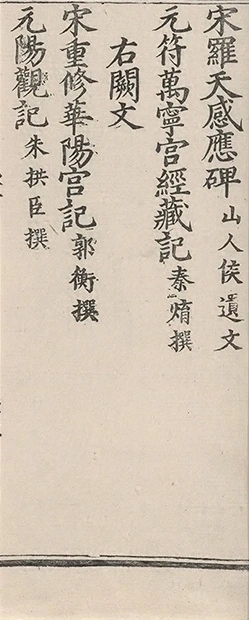 宋羅天感應碑 山人侯遺文
元符萬寧宮經藏記 秦焴撰
右闕文
宋重修華陽宮記 郭衡撰
元陽觀記 朱拱臣撰